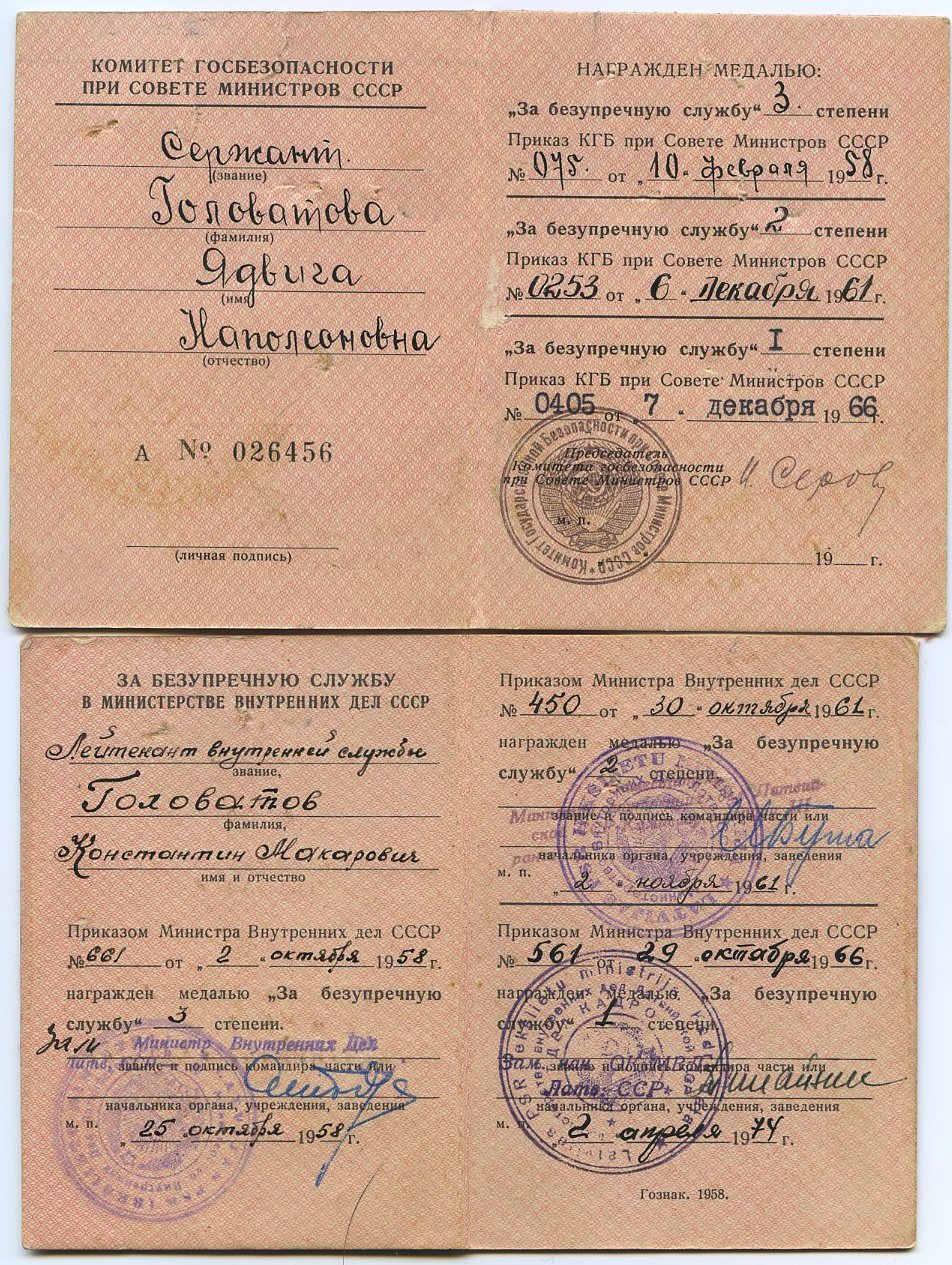 КОМИТЕТ ГОСБЕЗОПАСНОСТИ
ПРИ СОВЕТЕ МИНИСТРОВ СССР
Сержант.
(звание)
Головатова
(фамилия)
Ядвига
(имя)
Наполеоновна
(отчество)
А № 026456
(личная подпись)
НАГРАЖДЕН МЕДАЛЬЮ:
„За безупречную службу“ 3. степени
Приказ КГБ при Совете Министров СССР
№ 075. от „10 февраля 1958 г.
„За безупречную службу“ 2 степени
Приказ КГБ при Совете Министров СССР
№ 0253 от „6“ декабря 1961 г.
„За безупречную службу“ I степени
Приказ КГБ при Совете Министров СССР
№ 0405 от 7 " декабря 1966 г.
Председатель
Комитета госбезопасности
при Совете Министров СССР И. Серов
м. п.
19 г.
ЗА БЕЗУПРЕЧНУЮ СЛУЖБУ
В МИНИСТЕРСТВЕ ВНУТРЕННИХ ДЕЛ СССР
Лейтенант внутренней службы
звание,
Головатов
фамилия,
Константин Макарович
имя и отчество
Приказом Министра Внутренних дел СССР
№ 661 от „2“ октября 1958 г.
награжден медалью „За безупречную
службу“ 3 степени.
Зам Министр Внутренних Дел
Латв. ССР
звание и подпись командира части или
начальника органа, учреждения, заведения
м. п. „25 октября 1958 г.
Приказом Министра Внутренних дел СССР
№ 450 от „30“ октября 1961 г.
награжден медалью „За безупречную
службу“ 2 степени.
звание и подпись командира части или
начальника органа, учреждения, заведения
м. п. „2“ ноября 1961 г.
Приказом Министра Внутренних дел СССР
№ 561 от „29“ октября 1966 г.
награжден медалью „За безупречную
службу“ 1 степени.
Зам. нач. ОК МВД
Латв. ССР
звание и подпись командира части или
начальника органа, учреждения, заведения
м. п. 2 апреля 1974 г.
Гознак. 1958.